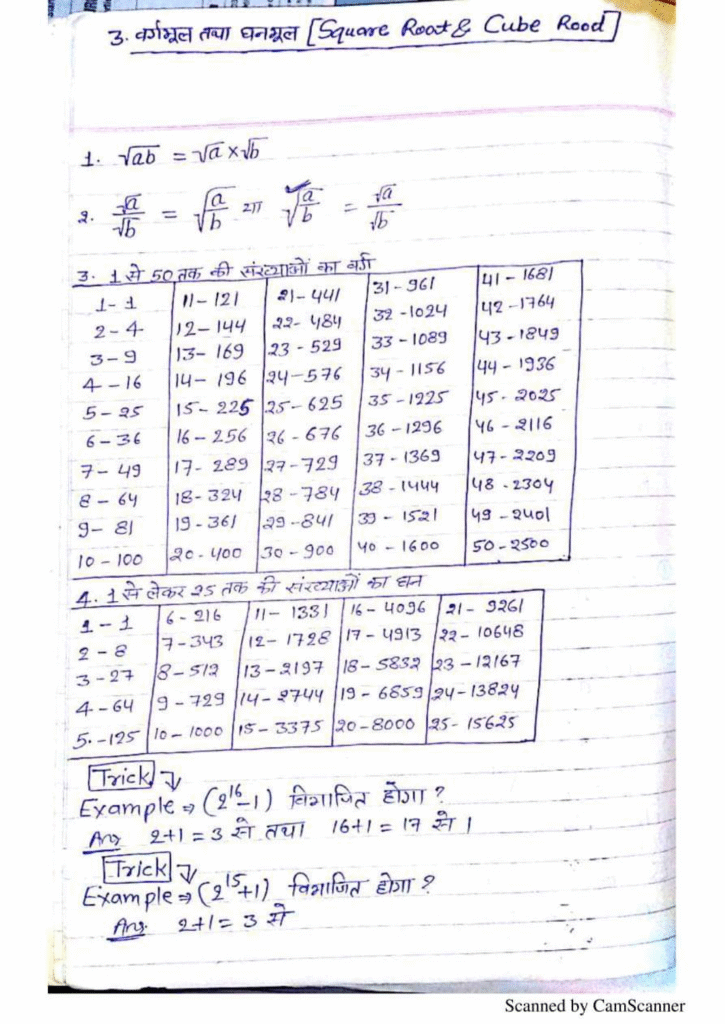 3. वर्गमूल तथा घनमूल [Square Root & Cube Rood]
1. √ab = √a × √b
2. √a/√b = √(a/b) या √(a/b) = √a/√b
3. 1 से 50 तक की संख्याओं का वर्ग
1-1 11-121 21-441 31-961 41-1681
2-4 12-144 22-484 32-1024 42-1764
3-9 13-169 23-529 33-1089 43-1849
4-16 14-196 24-576 34-1156 44-1936
5-25 15-225 25-625 35-1225 45-2025
6-36 16-256 26-676 36-1296 46-2116
7-49 17-289 27-729 37-1369 47-2209
8-64 18-324 28-784 38-1444 48-2304
9-81 19-361 29-841 39-1521 49-2401
10-100 20-400 30-900 40-1600 50-2500
4. 1 से लेकर 25 तक की संख्याओं का घन
1-1 6-216 11-1331 16-4096 21-9261
2-8 7-343 12-1728 17-4913 22-10648
3-27 8-512 13-2197 18-5832 23-12167
4-64 9-729 14-2744 19-6859 24-13824
5.-125 10-1000 15-3375 20-8000 25-15625
Trick
Example ⇒ (2¹⁶-1) विभाजित होगा?
Ans 2+1=3 से तथा 16+1=17 से।
Trick
Example ⇒ (2¹⁵+1) विभाजित होगा?
Ans. 2+1=3 से
Scanned by CamScanner